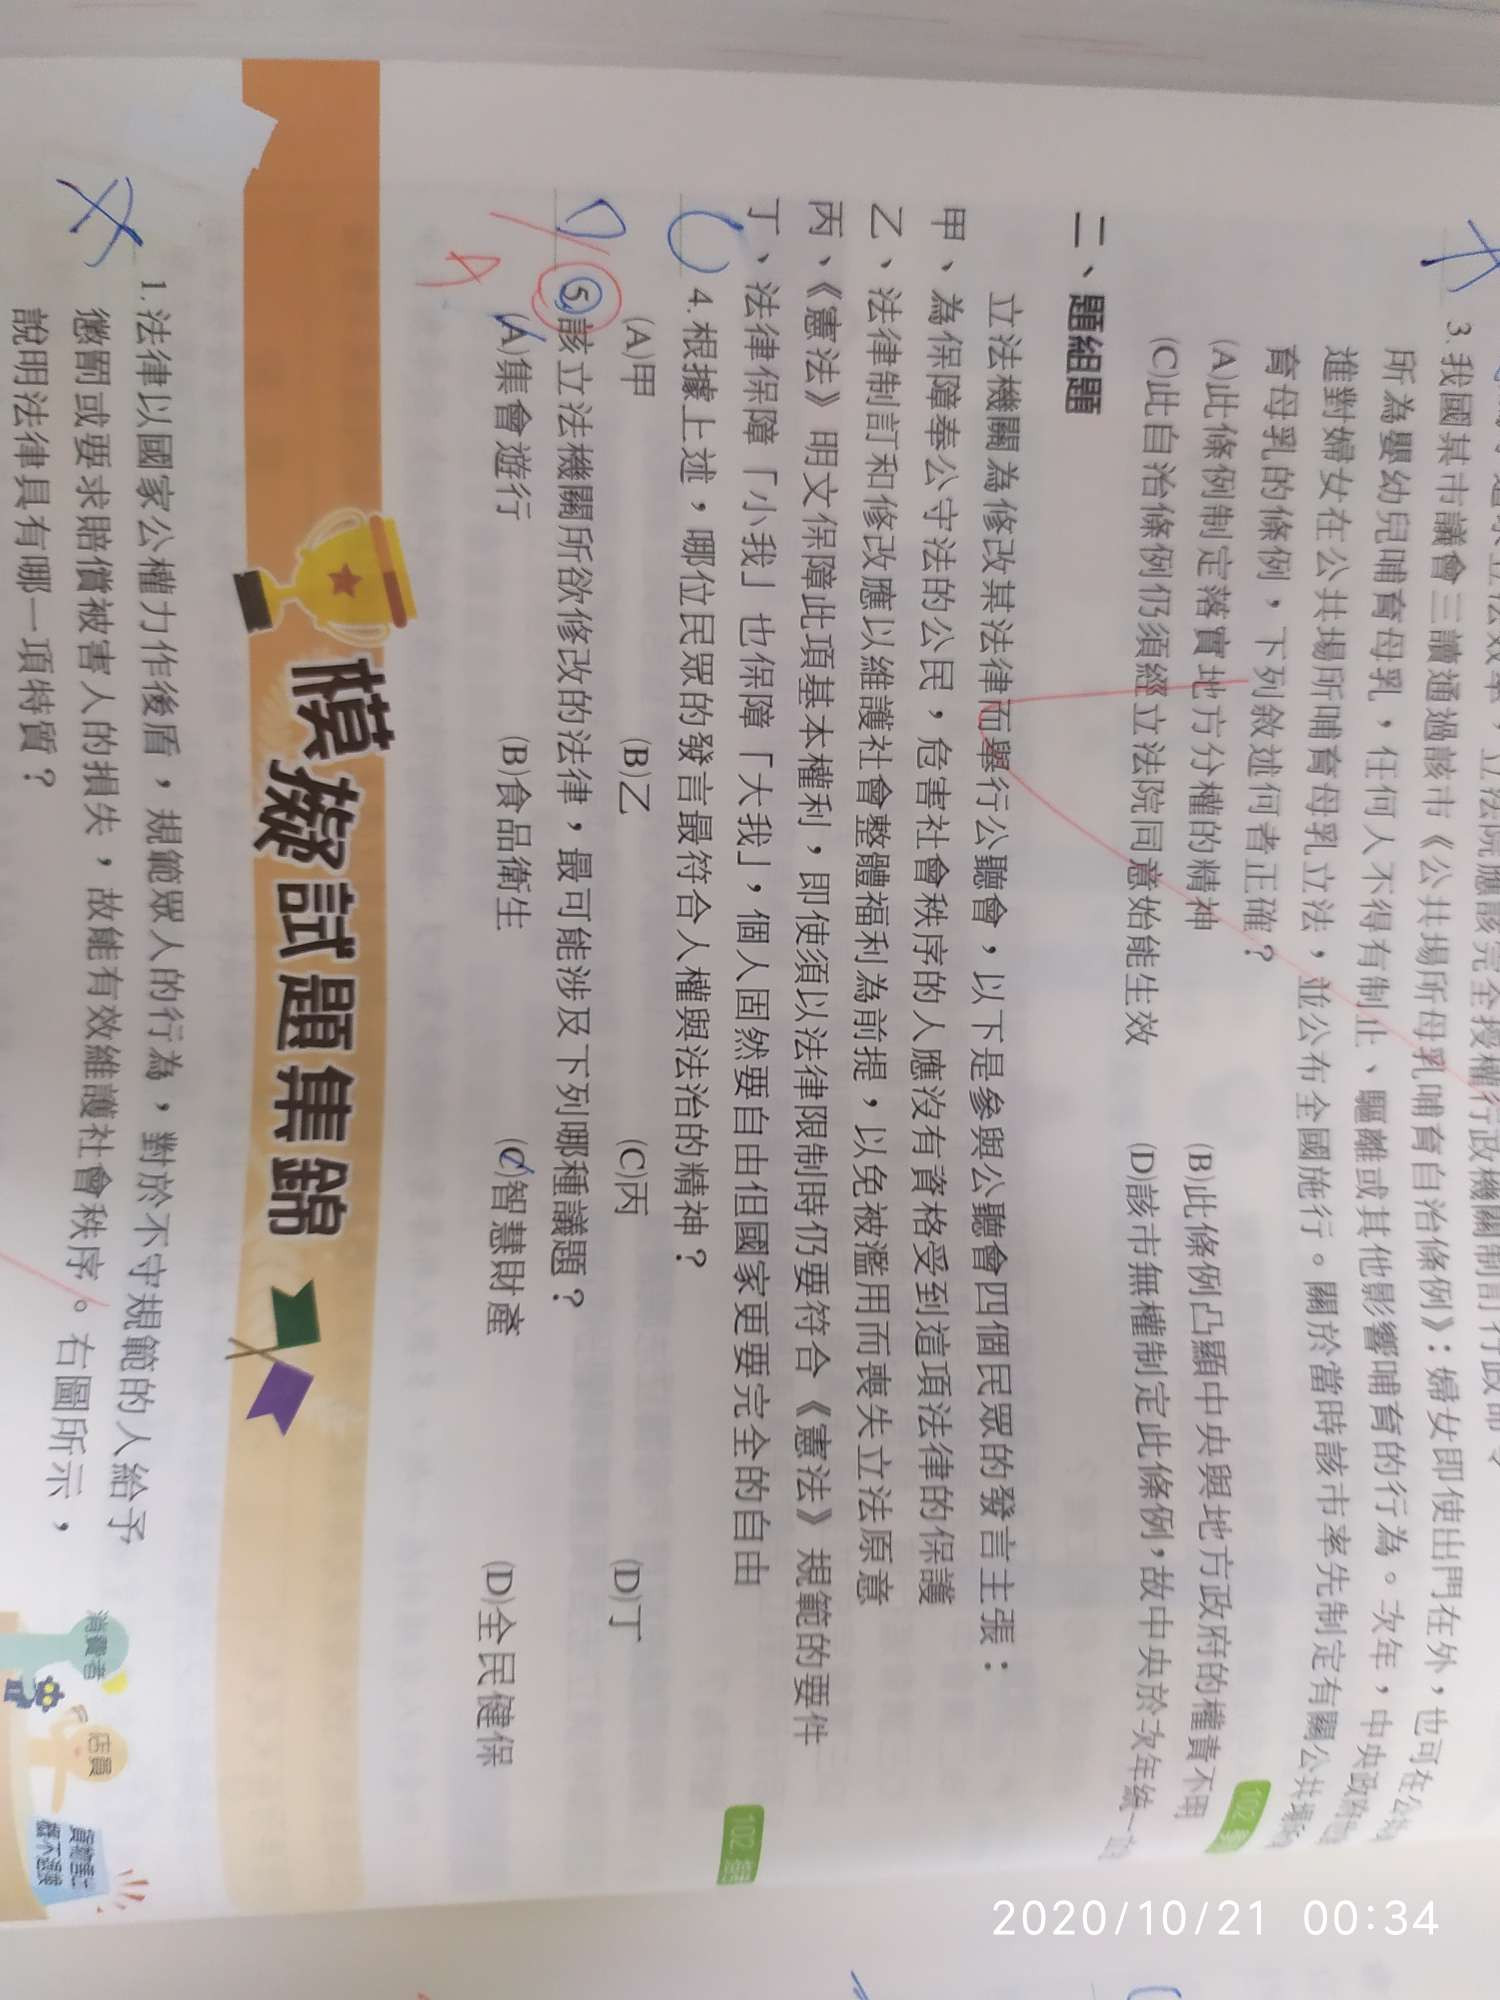 立法院應該完全授權行政機關制訂行政命令
3. 我國某市議會三讀通過該市《公共場所母乳哺育自治條例》：婦女即使出門在外，也可在公
所為嬰幼兒哺育母乳，任何人不得有制止、驅離或其他影響哺育的行為。次年，中央政府
進對婦女在公共場所哺育母乳立法，並公布全國施行。關於當時該市率先制定有關公共場所
育母乳的條例，下列敘述何者正確？
(A)此條例制定落實地方分權的精神 (B)此條例凸顯中央與地方政府的權責不明
(C)此自治條例仍須經立法院同意始能生效 (D)該市無權制定此條例，故中央於次年統一
二、題組題
立法機關為修改某法律而舉行公聽會，以下是參與公聽會四個民眾的發言主張：
甲、為保障奉公守法的公民，危害社會秩序的人應沒有資格受到這項法律的保護
乙、法律制訂和修改應以維護社會整體福利為前提，以免被濫用而喪失立法原意
丙、《憲法》明文保障此項基本權利，即使須以法律限制時仍要符合《憲法》規範的要件
丁、法律保障「小我」也保障「大我」，個人固然要自由但國家更要完全的自由
102.
C 4. 根據上述，哪位民眾的發言最符合人權與法治的精神？
(A)甲 (B)乙 (C)丙 (D)丁
D 5. 該立法機關所欲修改的法律，最可能涉及下列哪種議題？
A
(A)集會遊行 (B)食品衛生 (C)智慧財產 (D)全民健保
模擬試題集錦
1. 法律以國家公權力作後盾，規範眾人的行為，對於不守規範的人給予
懲罰或要求賠償被害人的損失，故能有效維護社會秩序。右圖所示，
說明法律具有哪一項特質？
消費者
店員
貨物售出
概不退換
2020/10/21 00:34